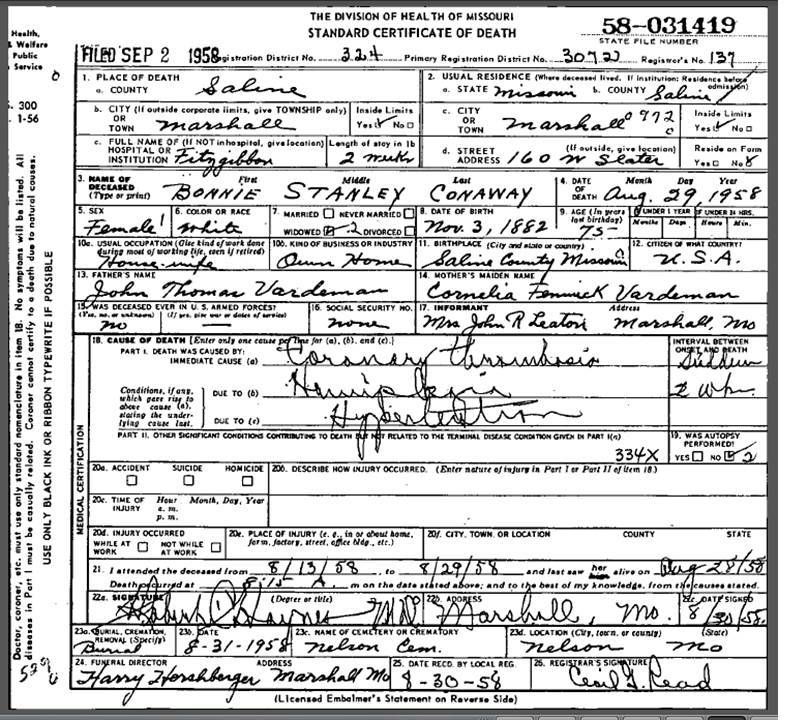 THE DIVISION OF HEALTH OF MISSOURI
STANDARD CERTIFICATE OF DEATH
58-031419
STATE FILE NUMBER
Health,
& Welfare
Public
Service
FILED SEP 2 1958 Registration District No. 324 Primary Registration District No. 3072 Registrar's No. 137
300
1-56
1. PLACE OF DEATH
a. COUNTY Saline
2. USUAL RESIDENCE (Where deceased lived. If institution: Residence before admission)
a. STATE Missouri b. COUNTY Saline
b. CITY (If outside corporate limits, give TOWNSHIP only) Inside Limits
OR
TOWN Marshall Yes No
c. CITY Inside Limits
OR
TOWN Marshall 0972 0 Yes No
c. FULL NAME OF (If NOT in hospital, give location) Length of stay in 1b
HOSPITAL OR
INSTITUTION Fitzgibbon 2 weeks
d. STREET (If outside, give location) Reside on Farm
ADDRESS 160 W Slater Yes No
3. NAME OF DECEASED (Type or print) First Middle Last
BONNIE STANLEY CONAWAY
4. DATE OF DEATH Month Day Year
Aug. 29, 1958
5. SEX
Female
6. COLOR OR RACE
White
7. MARRIED NEVER MARRIED
WIDOWED 2 DIVORCED
8. DATE OF BIRTH
Nov. 3, 1882
9. AGE (In years last birthday) IF UNDER 1 YEAR IF UNDER 24 HRS.
Months Days Hours Min.
75
10a. USUAL OCCUPATION (Give kind of work done during most of working life, even if retired)
House-wife
10b. KIND OF BUSINESS OR INDUSTRY
Own Home
11. BIRTHPLACE (City and state or country)
Saline County Missouri
12. CITIZEN OF WHAT COUNTRY?
U.S.A.
13. FATHER'S NAME
John Thomas Vardeman
14. MOTHER'S MAIDEN NAME
Cornelia Fenwick Vardeman
15. WAS DECEASED EVER IN U.S. ARMED FORCES?
(Yes, no, or unknown) (If yes, give war or dates of service)
no —
16. SOCIAL SECURITY NO.
none
17. INFORMANT Address
Mrs John R Leaton Marshall, Mo
18. CAUSE OF DEATH [Enter only one cause per line for (a), (b), and (c).]
PART I. DEATH WAS CAUSED BY:
IMMEDIATE CAUSE (a) Coronary thrombosis
INTERVAL BETWEEN ONSET AND DEATH
Sudden
Conditions, if any, which gave rise to above cause (a), stating the underlying cause last.
DUE TO (b) Hemiplegia 2 wks.
DUE TO (c) Hypertension
PART II. OTHER SIGNIFICANT CONDITIONS CONTRIBUTING TO DEATH BUT NOT RELATED TO THE TERMINAL DISEASE CONDITION GIVEN IN PART I(a)
334X
19. WAS AUTOPSY PERFORMED?
YES NO 2
20a. ACCIDENT SUICIDE HOMICIDE
20b. DESCRIBE HOW INJURY OCCURRED. (Enter nature of injury in Part I or Part II of item 18.)
20c. TIME OF INJURY Hour Month, Day, Year
a. m.
p. m.
20d. INJURY OCCURRED
WHILE AT WORK NOT WHILE AT WORK
20e. PLACE OF INJURY (e. g., in or about home, farm, factory, street, office bldg., etc.)
20f. CITY, TOWN, OR LOCATION COUNTY STATE
21. I attended the deceased from 8/13/58, to 8/29/58 and last saw her alive on Aug 28/58
Death occurred at 8:15 A. m on the date stated above; and to the best of my knowledge, from the causes stated.
22a. SIGNATURE (Degree or title)
Robert C Haynes MD
22b. ADDRESS
Marshall, Mo.
22c. DATE SIGNED
8/30/58
23a. BURIAL, CREMATION, REMOVAL (Specify)
Burial
23b. DATE
8-31-1958
23c. NAME OF CEMETERY OR CREMATORY
Nelson Cem.
23d. LOCATION (City, town, or county) (State)
Nelson Mo
24. FUNERAL DIRECTOR ADDRESS
Harry Hershberger Marshall Mo
25. DATE RECD. BY LOCAL REG.
8-30-58
26. REGISTRAR'S SIGNATURE
Cecil G. Read
(Licensed Embalmer's Statement on Reverse Side)
MEDICAL CERTIFICATION
USE ONLY BLACK INK OR RIBBON TYPEWRITE IF POSSIBLE
Doctor, coroner, etc. must use only standard nomenclature in item 18. No symptoms will be listed. All
diseases in Part I must be causally related. Coroner cannot certify to a death due to natural causes.